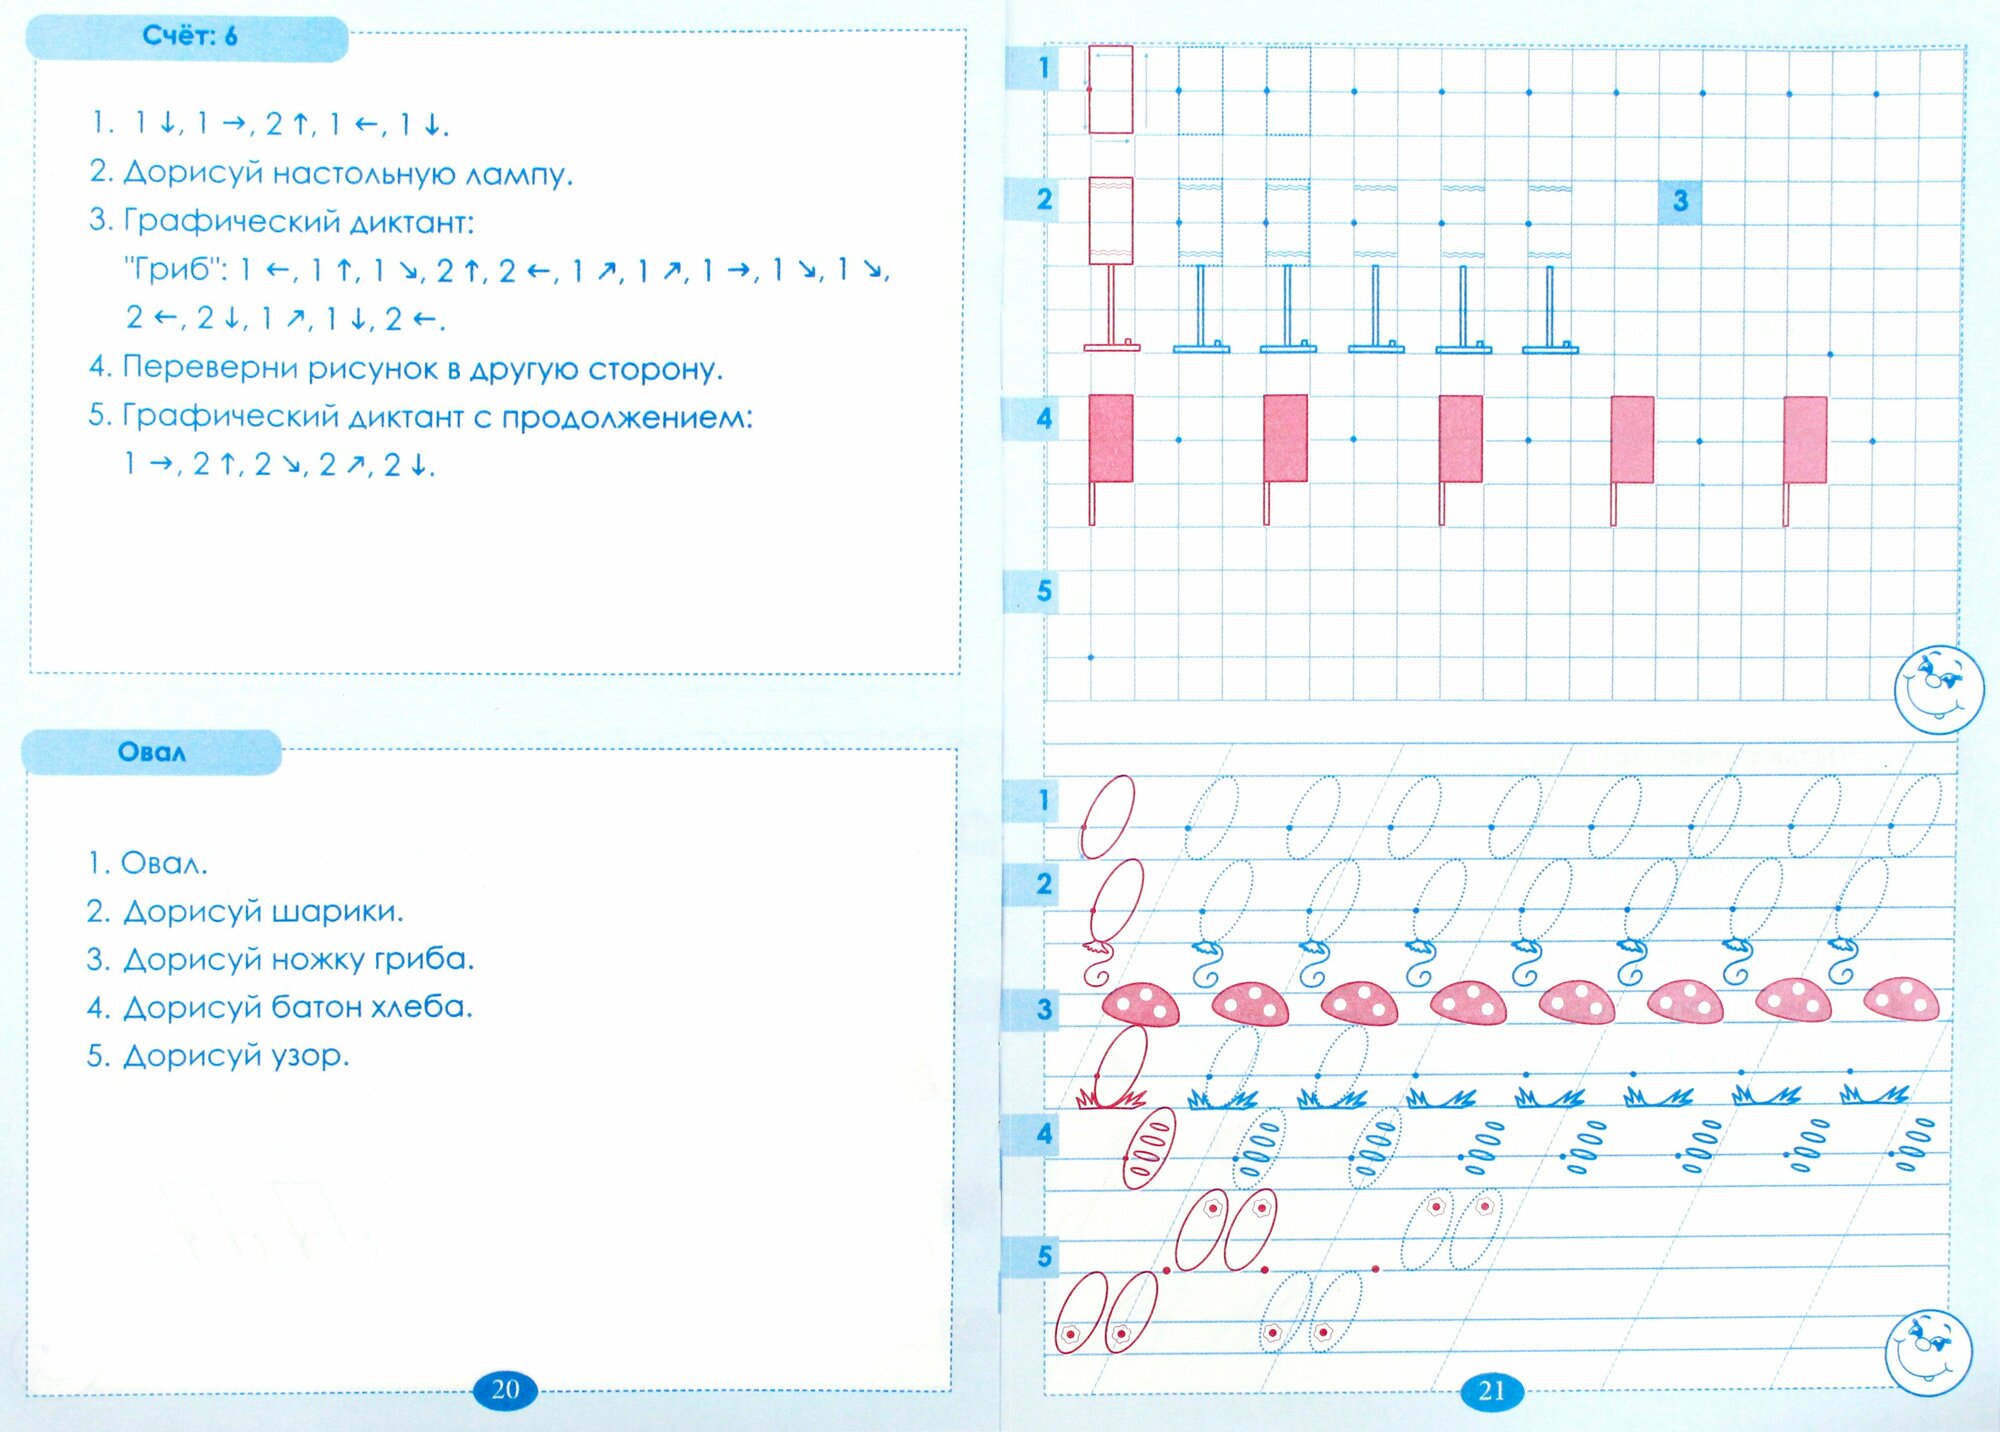 Счёт: 6
1. 1 ↓, 1 →, 2 ↑, 1 ←, 1 ↓.
2. Дорисуй настольную лампу.
3. Графический диктант:
"Гриб": 1 ←, 1 ↑, 1 ↘, 2 ↑, 2 ←, 1 ↗, 1 ↗, 1 →, 1 ↘, 1 ↘,
2 ←, 2 ↓, 1 ↗, 1 ↓, 2 ←.
4. Переверни рисунок в другую сторону.
5. Графический диктант с продолжением:
1 →, 2 ↑, 2 ↘, 2 ↗, 2 ↓.
Овал
1. Овал.
2. Дорисуй шарики.
3. Дорисуй ножку гриба.
4. Дорисуй батон хлеба.
5. Дорисуй узор.
20
1
2
3
4
5
1
2
3
4
5
21